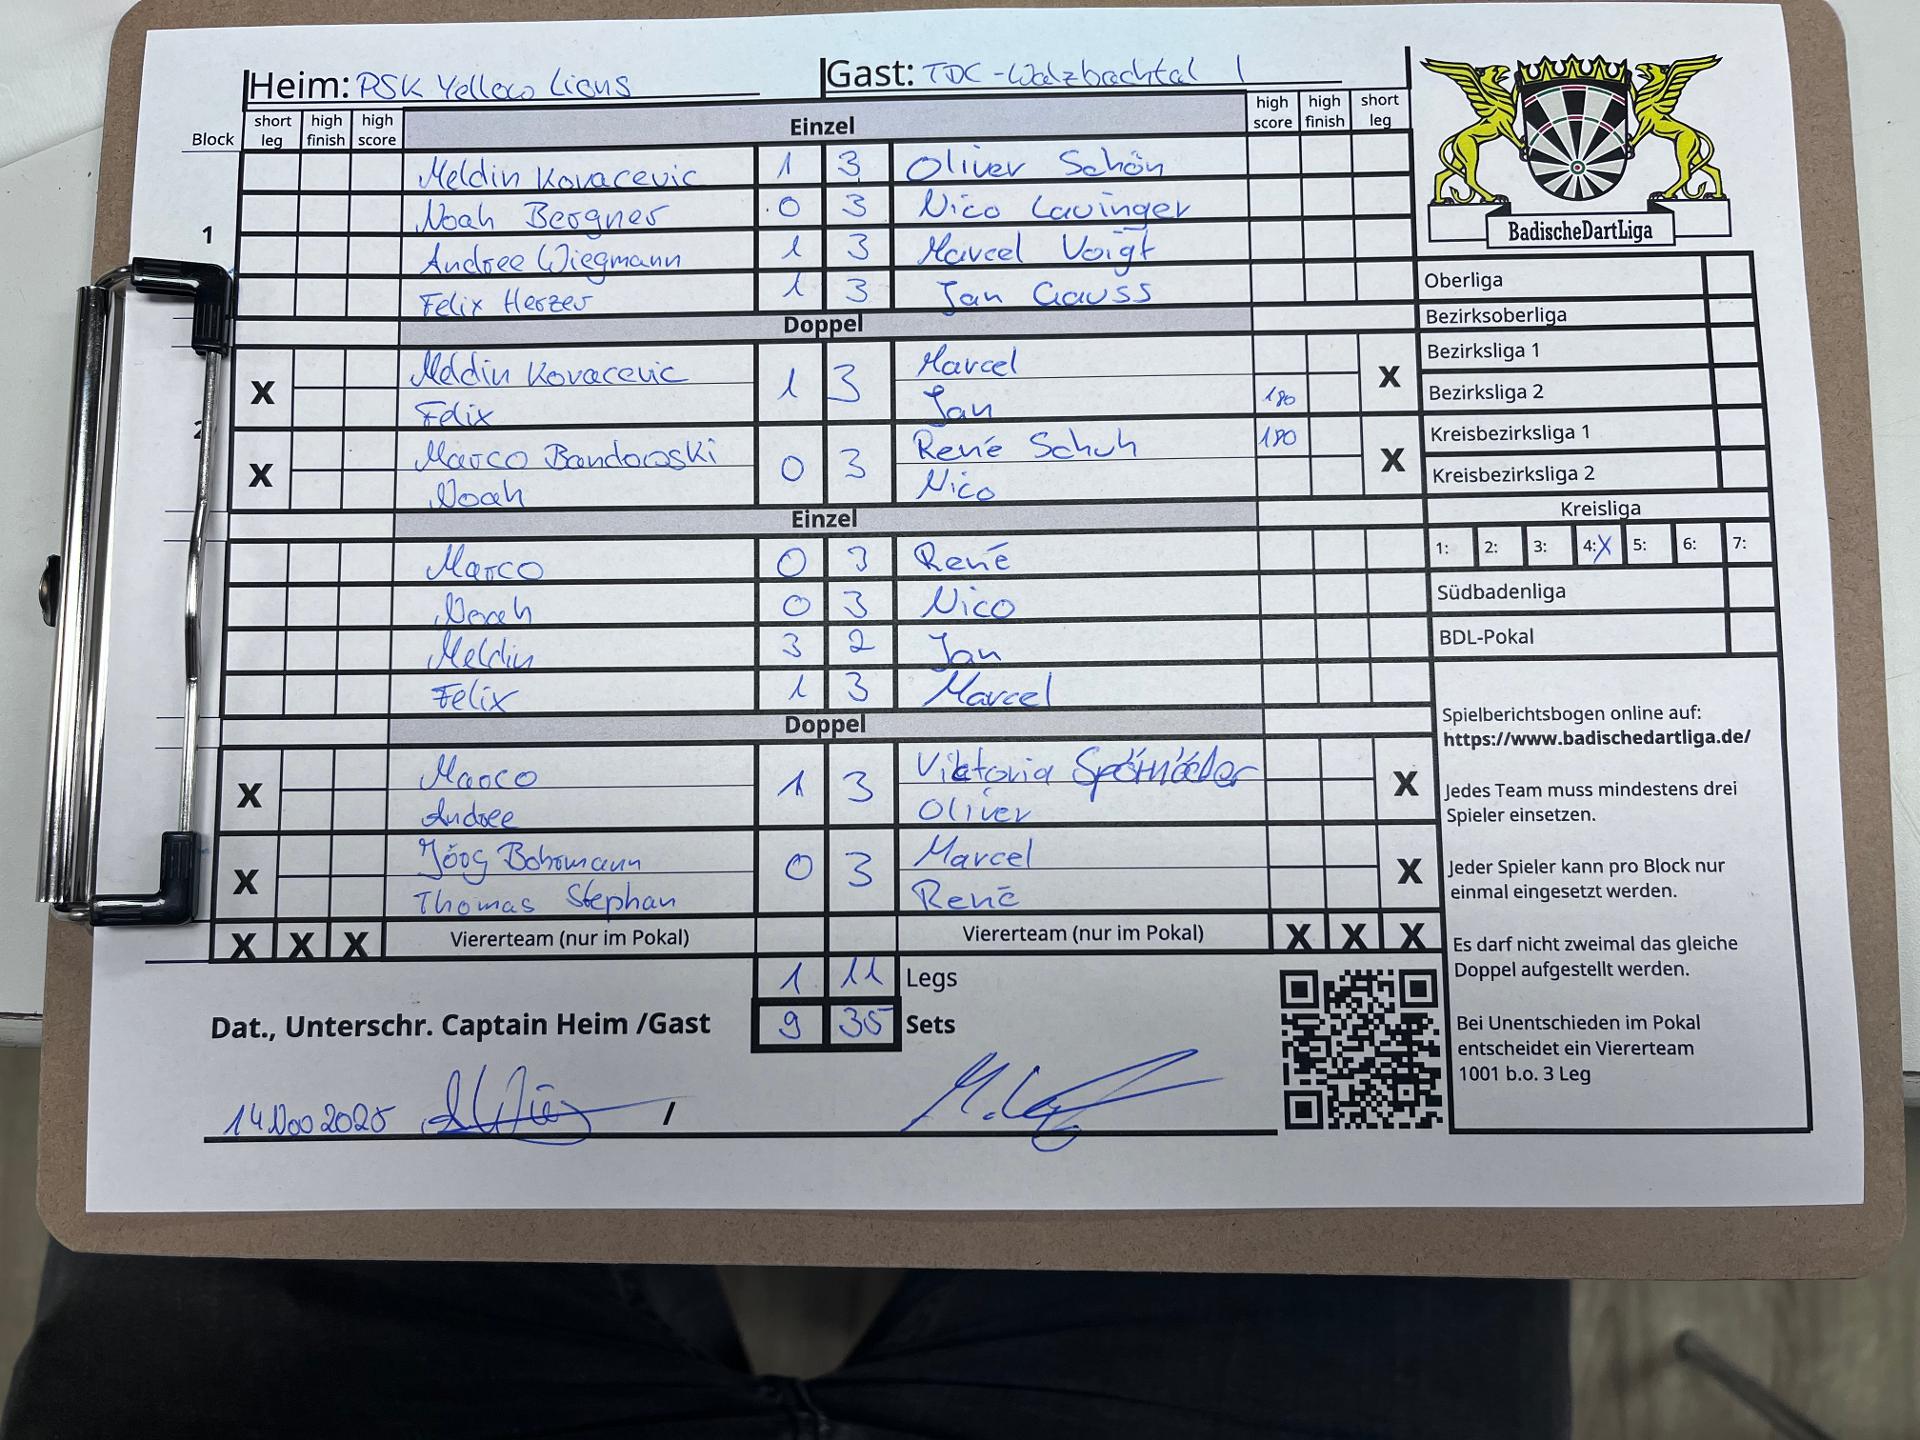 Heim: PSK Yellow Lions Gast: TDC-Walzbachtal 1
Block short leg high finish high score Einzel high score high finish short leg
Meldin Kovacevic 1 3 Oliver Schön
Noah Bergner 0 3 Nico Lauinger
1
Andree Wiegmann 1 3 Marcel Voigt
Felix Herzer 1 3 Jan Gauss
Doppel
Meldin Kovacevic Marcel
X 1 3 X
Felix Jan 180
2
Marco Bandowski René Schuh 180
X 0 3 X
Noah Nico
Einzel
Marco 0 3 René
Noah 0 3 Nico
Meldin 3 2 Jan
Felix 1 3 Marcel
Doppel
Marco Viktoria
X 1 3 X
Andree Oliver
Jörg Bohrmann Marcel
X 0 3 X
Thomas Stephan René
X X X Viererteam (nur im Pokal) Viererteam (nur im Pokal) X X X
1 11 Legs
Dat., Unterschr. Captain Heim /Gast 9 35 Sets
14 Nov 2025 /
BadischeDartLiga
Oberliga
Bezirksoberliga
Bezirksliga 1
Bezirksliga 2
Kreisbezirksliga 1
Kreisbezirksliga 2
Kreisliga
1: 2: 3: 4:X 5: 6: 7:
Südbadenliga
BDL-Pokal
Spielberichtsbogen online auf:
https://www.badischedartliga.de/
Jedes Team muss mindestens drei
Spieler einsetzen.
Jeder Spieler kann pro Block nur
einmal eingesetzt werden.
Es darf nicht zweimal das gleiche
Doppel aufgestellt werden.
Bei Unentschieden im Pokal
entscheidet ein Viererteam
1001 b.o. 3 Leg